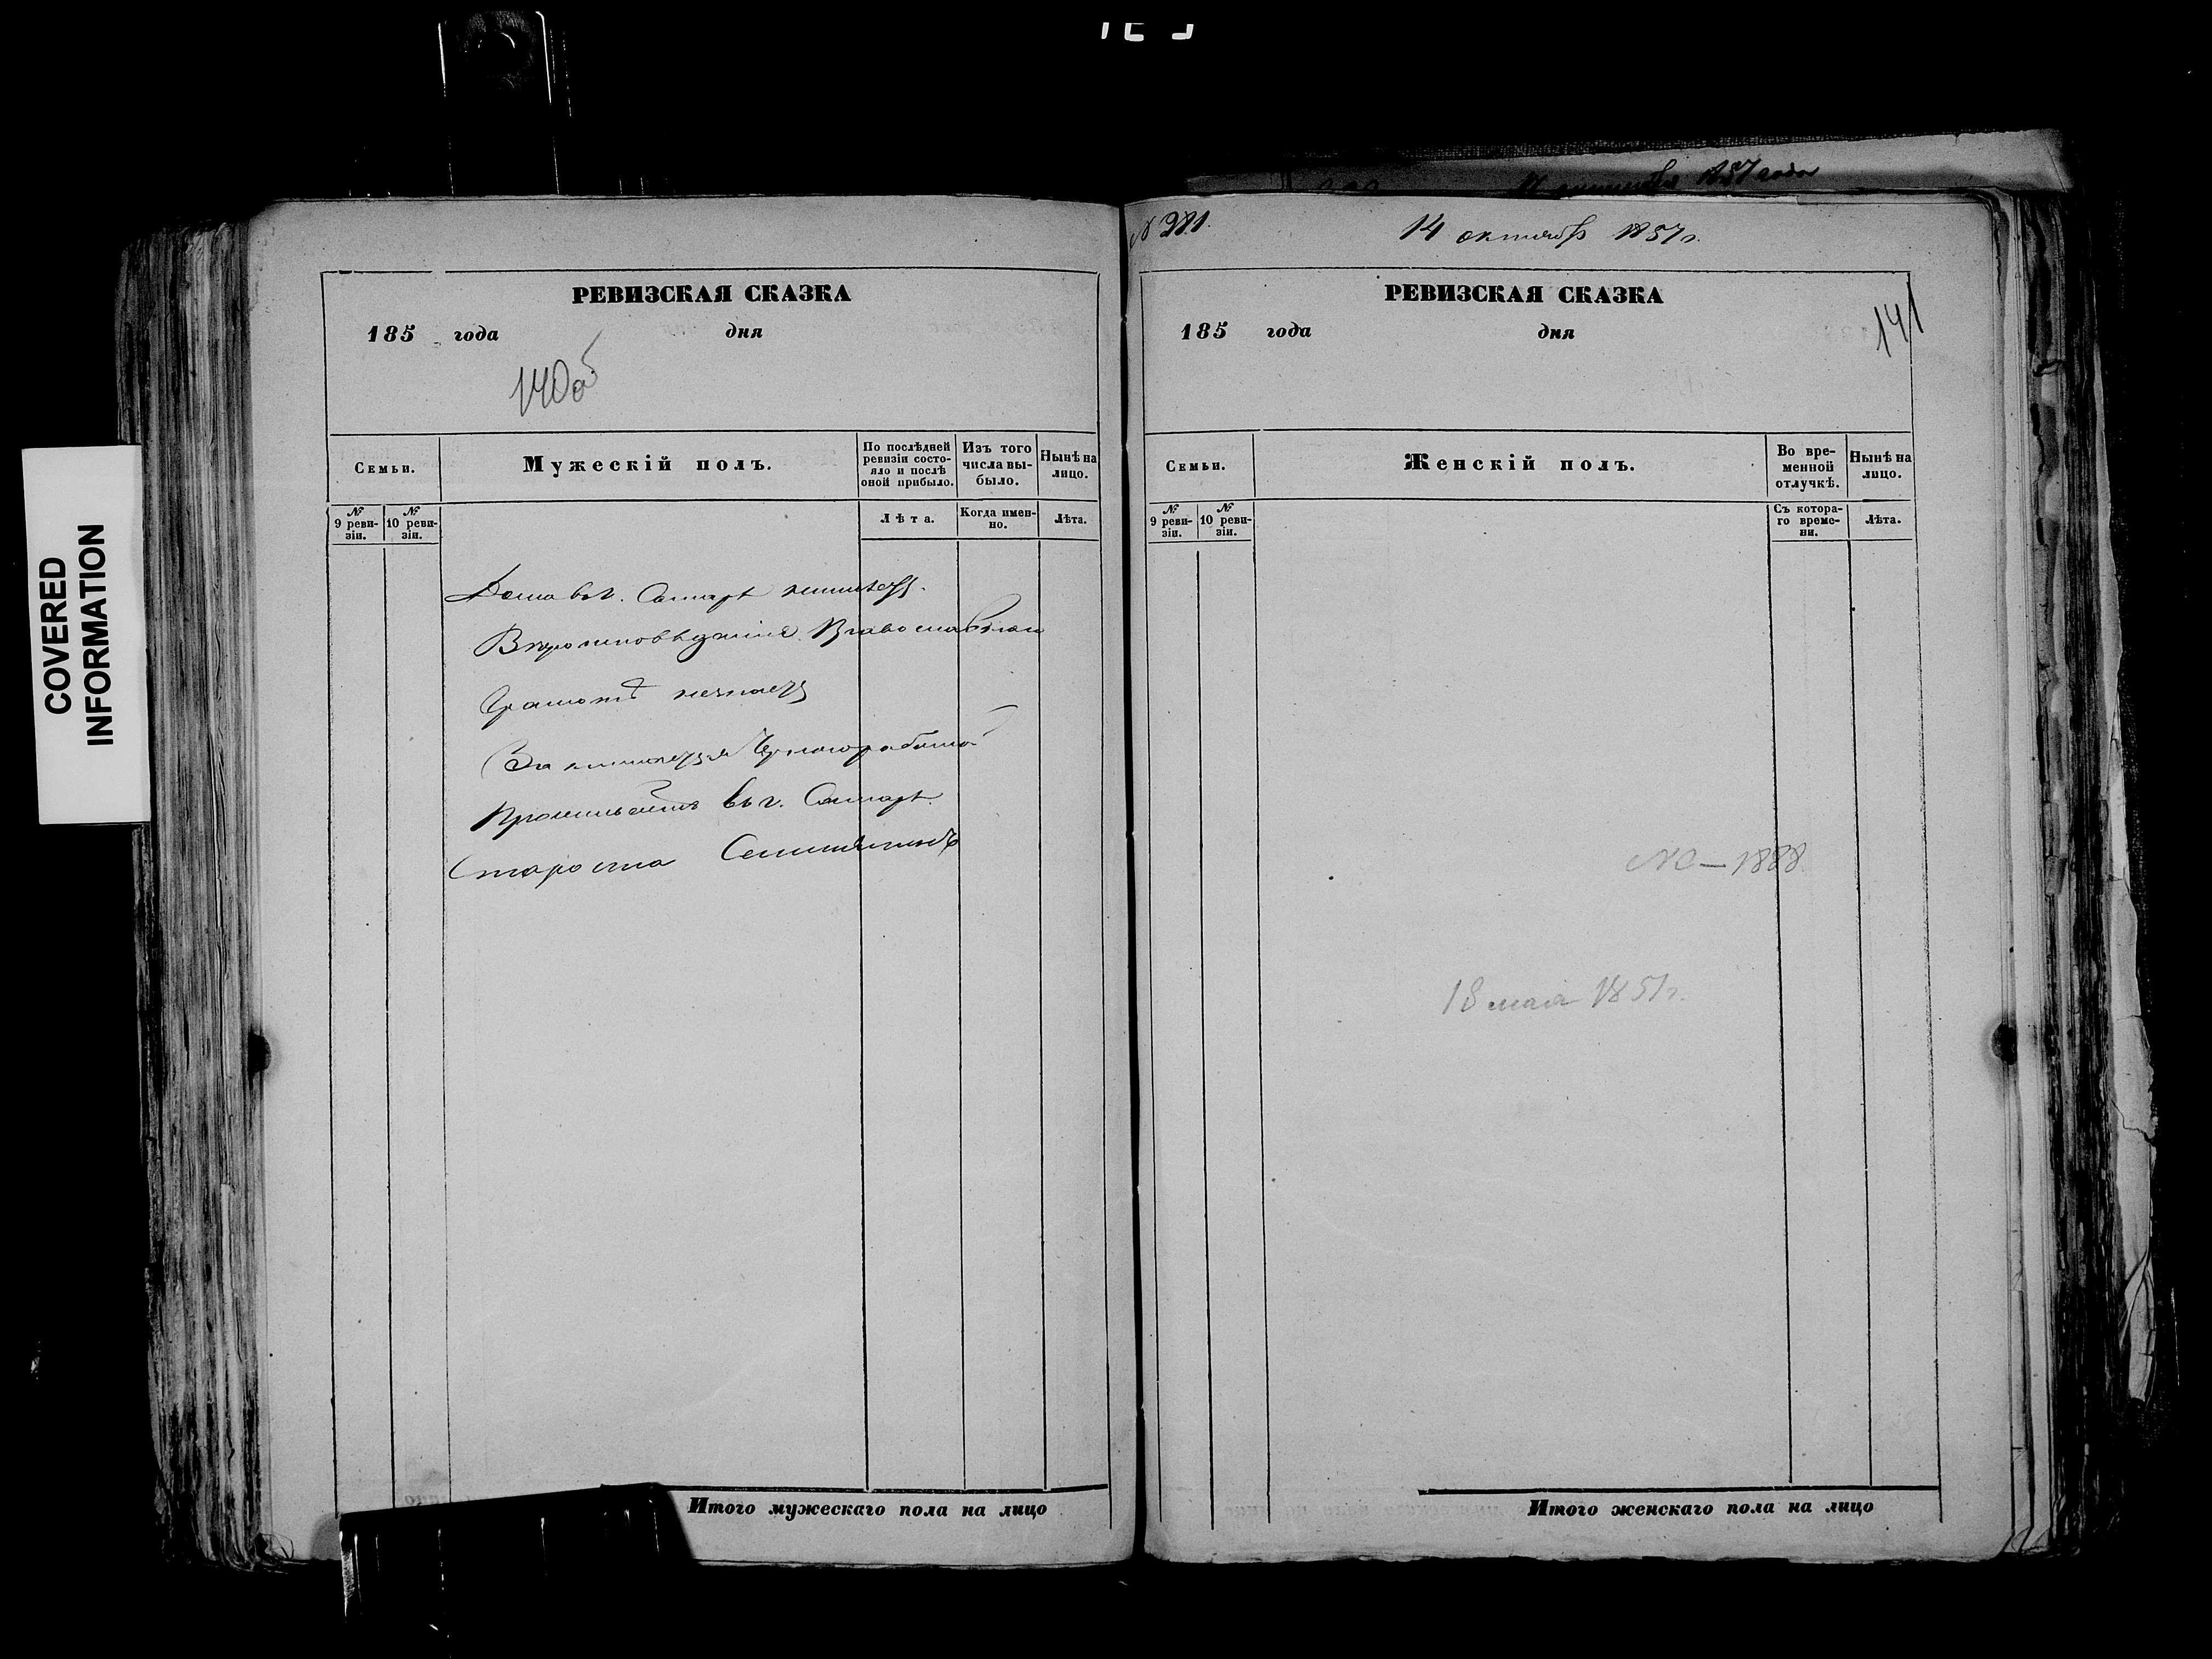 COVERED
INFORMATION
РЕВИЗСКАЯ СКАЗКА
185 года дня
140об
Семьи.
Мужескій полъ.
По послѣдней ревизіи состояло и послѣ оной прибыло.
Изъ того числа выбыло.
Нынѣ на лицо.
№ 9 ревизіи.
№ 10 ревизіи.
Лѣта.
Когда именно.
Лѣта.
Дома въ г. Самарѣ неимѣетъ.
Вѣроисповѣданія Православнаго
Грамотѣ незнаетъ
Занимается Чернаработой
Проживаетъ въ г. Самарѣ.
Староста
Итого мужескаго пола на лицо
1857 года
№ 281.
14 октября 1857 г.
РЕВИЗСКАЯ СКАЗКА
185 года дня
141
Семьи.
Женскій полъ.
Во временной отлучкѣ.
Нынѣ на лицо.
№ 9 ревизіи.
№ 10 ревизіи.
Съ котораго времени.
Лѣта.
1888
18 мая 1851 г.
Итого женскаго пола на лицо